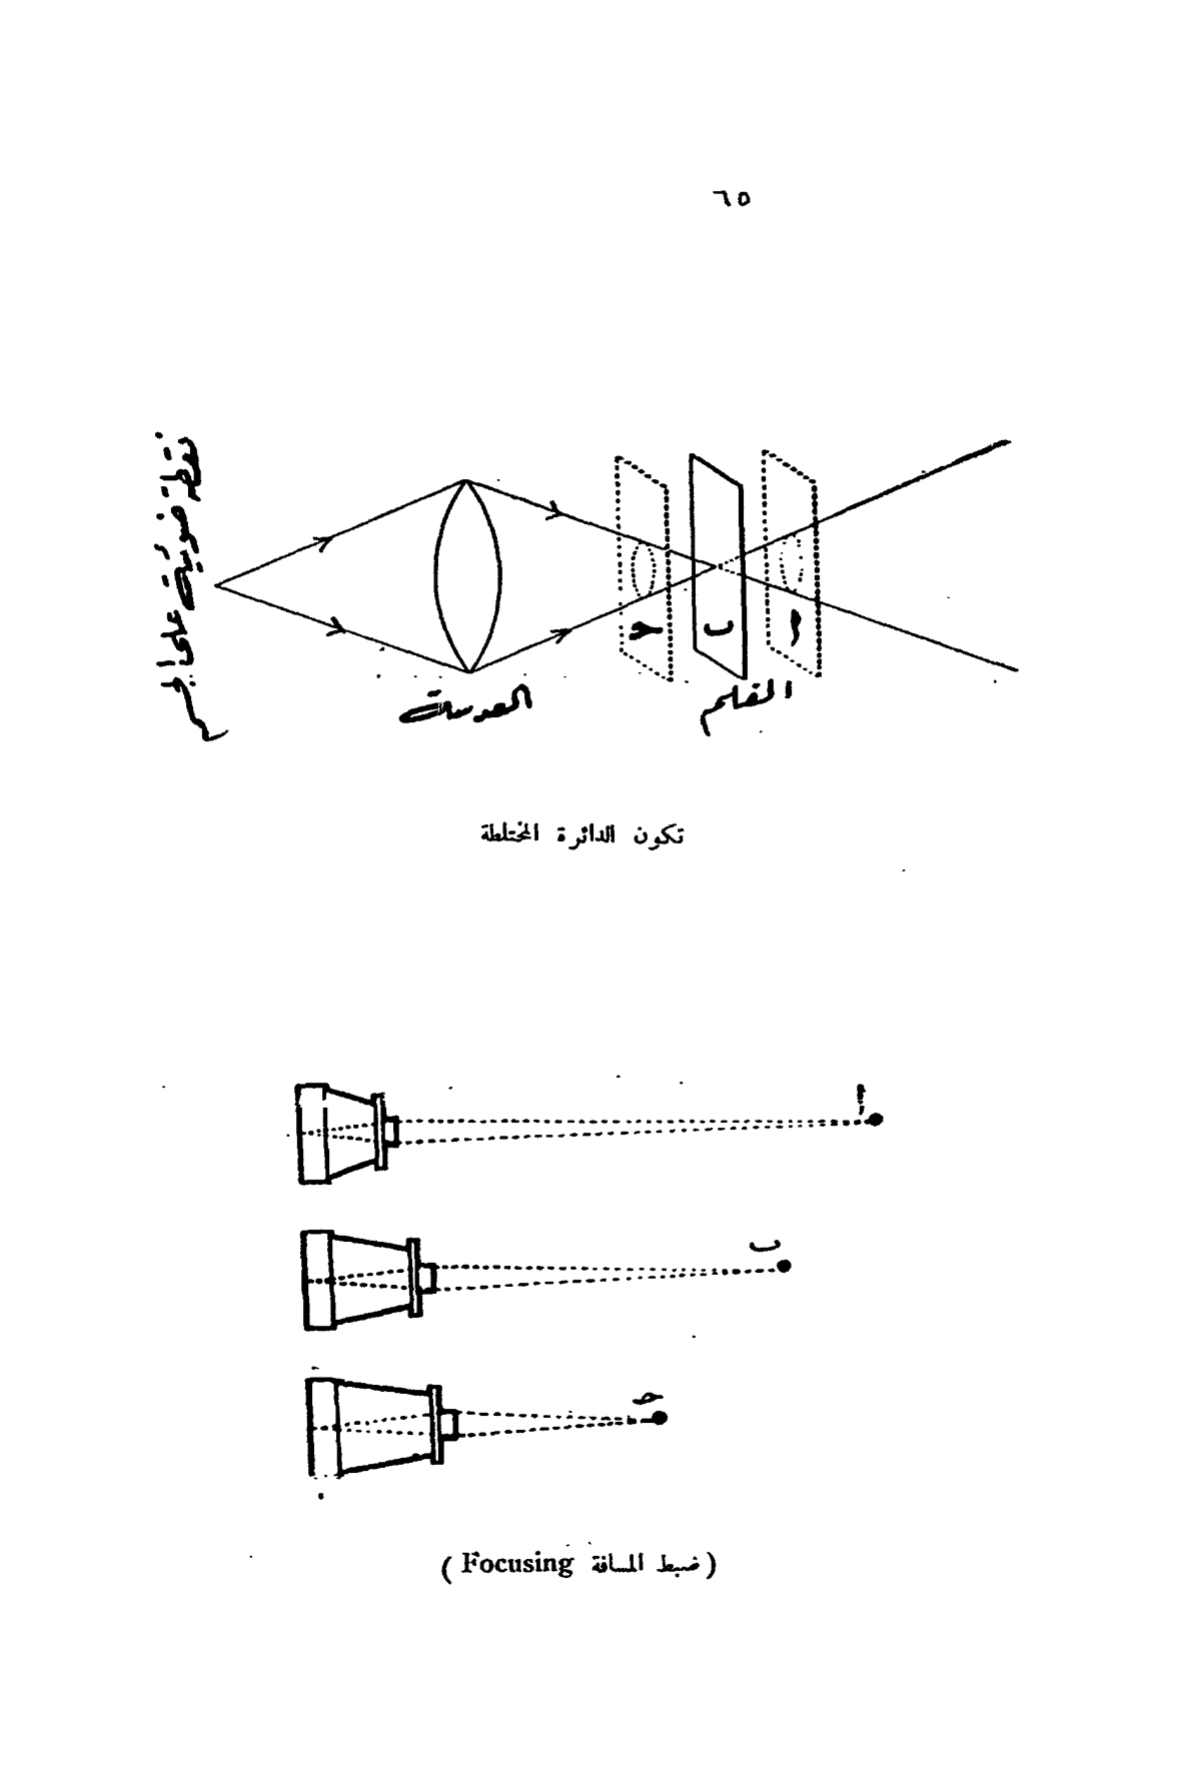 ٦٥
نقطة ضوئية على الجسم
العدسة
الفلم
أ
ب
ح
تكون الدائرة المختلطة
أ
ب
ح
( ضبط المسافة Focusing )